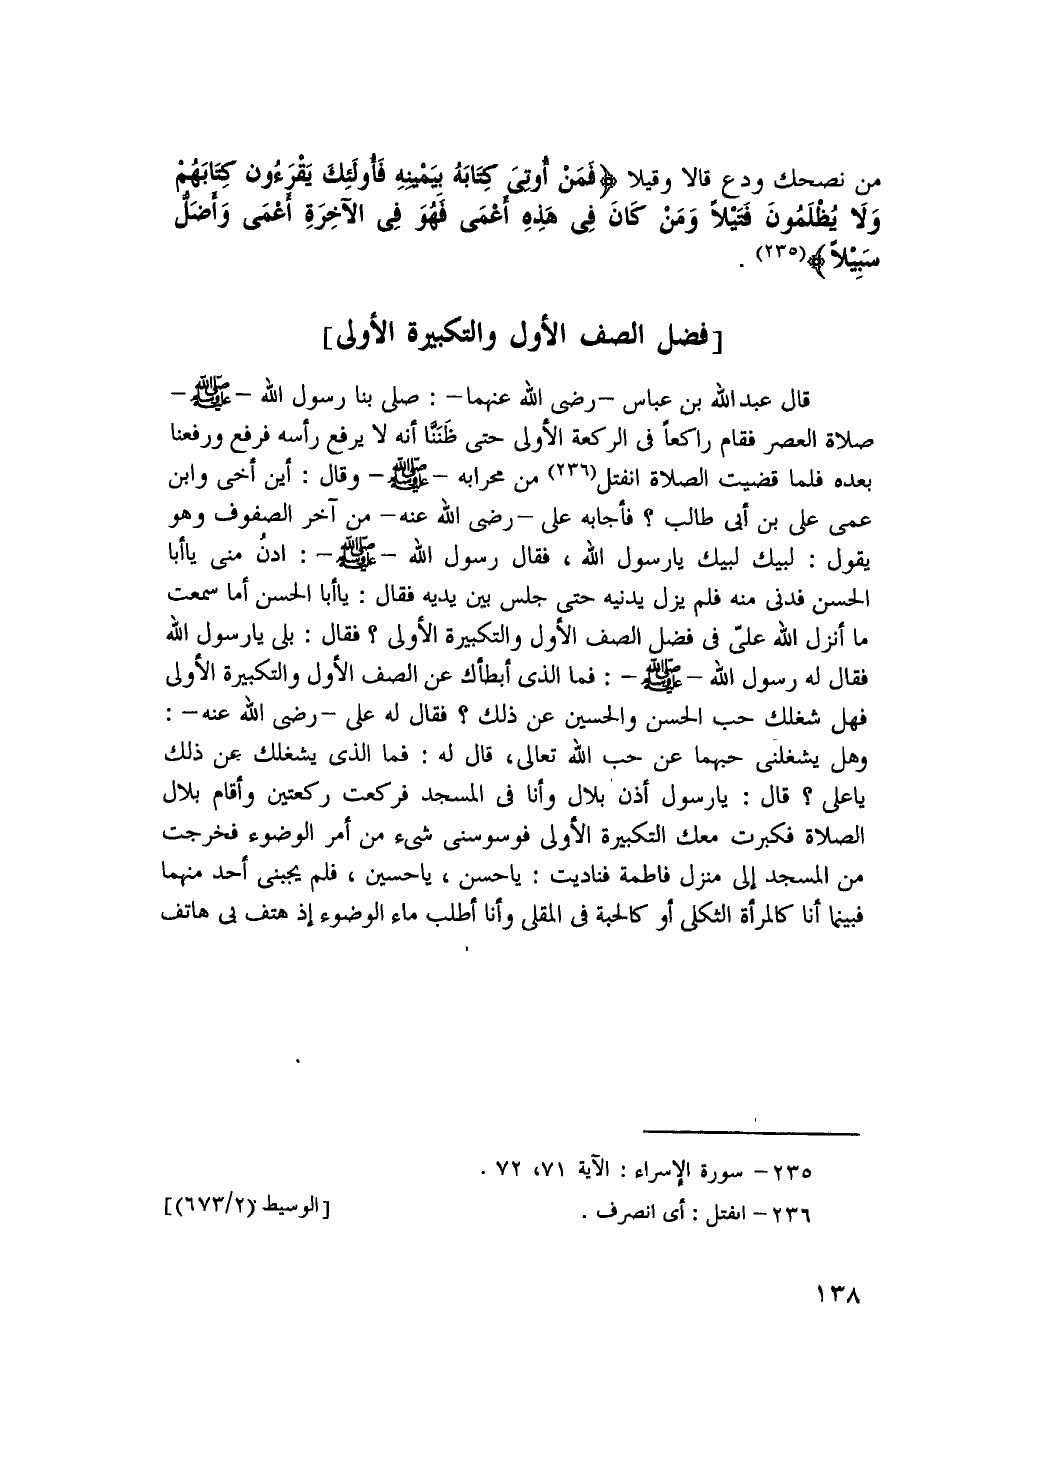 من نصحك ودع قالا وقيلا ﴿فَمَنْ أُوتِىَ كِتَابَهُ بِيَمْينِهِ فَأُولَئِكَ يَقْرَءُون كِتَابَهُمْ
وَلَا يُظْلَمُونَ فَتَيْلاً وَمَنْ كَانَ فِى هَذِهِ أَعْمَى فَهُوَ فِى الآخِرَةِ أَعْمَى وَأَضَلُّ
سَبِيْلاً﴾(٢٣٥) .
[فضل الصف الأول والتكبيرة الأولى]
قال عبدالله بن عباس –رضى الله عنهما– : صلى بنا رسول الله –ﷺ–
صلاة العصر فقام راكعاً فى الركعة الأولى حتى ظَنَنَّا أنه لا يرفع رأسه فرفع ورفعنا
بعده فلما قضيت الصلاة انفتل(٢٣٦) من محرابه –ﷺ– وقال : أين أخى وابن
عمى على بن أبى طالب ؟ فأجابه على –رضى الله عنه– من آخر الصفوف وهو
يقول : لبيك لبيك يارسول الله ، فقال رسول الله –ﷺ– : ادنُ منى ياأبا
الحسن فدنى منه فلم يزل يدنيه حتى جلس بين يديه فقال : ياأبا الحسن أما سمعت
ما أنزل الله علىّ فى فضل الصف الأول والتكبيرة الأولى ؟ فقال : بلى يارسول الله
فقال له رسول الله –ﷺ– : فما الذى أبطأك عن الصف الأول والتكبيرة الأولى
فهل شغلك حب الحسن والحسين عن ذلك ؟ فقال له على –رضى الله عنه– :
وهل يشغلنى حبهما عن حب الله تعالى، قال له : فما الذى يشغلك عن ذلك
ياعلى ؟ قال : يارسول أذن بلال وأنا فى المسجد فركعت ركعتين وأقام بلال
الصلاة فكبرت معك التكبيرة الأولى فوسوسنى شىء من أمر الوضوء فخرجت
من المسجد إلى منزل فاطمة فناديت : ياحسن ، ياحسين ، فلم يجبنى أحد منهما
فبينما أنا كالمرأة الثكلى أو كالحبة فى المقلى وأنا أطلب ماء الوضوء إذ هتف بى هاتف
٢٣٥– سورة الإسراء : الآية ٧١، ٧٢ .
٢٣٦– انفتل : أى انصرف . [الوسيط (٦٧٣/٢)]
١٣٨